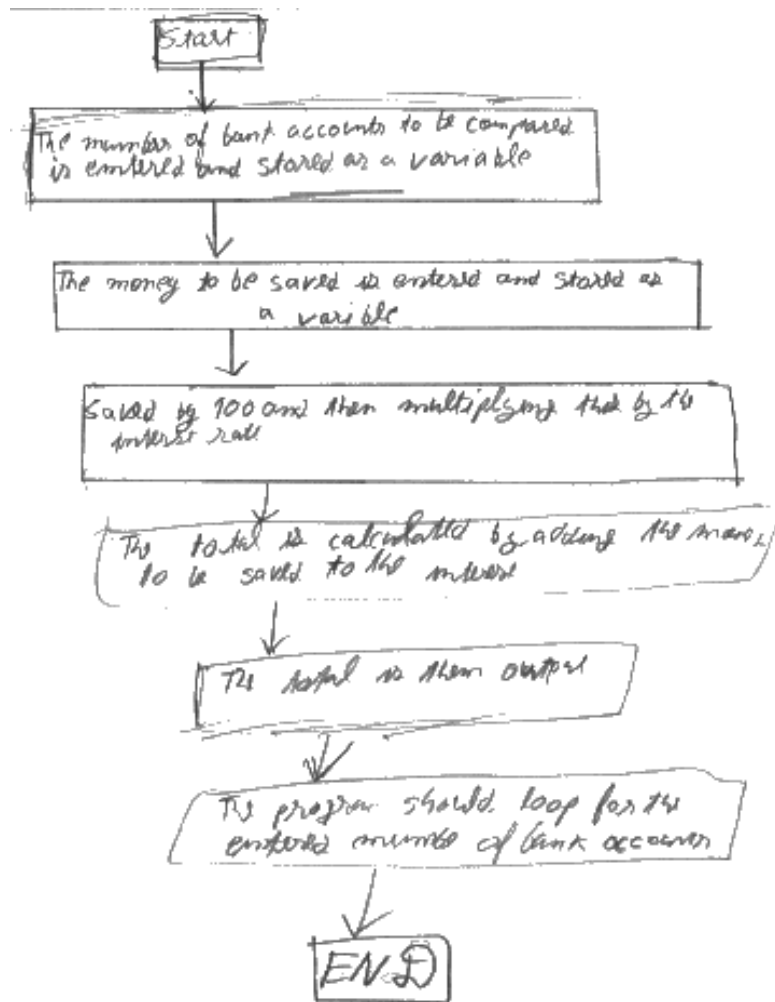 Start
The number of bank accounts to be compared
is entered and stored as a variable
The money to be saved is entered and stored as
a varible
Saved by 100 and then multiplying that by the
interest rate
The total is calculated by adding the
to be saved to the interest
The total is then output
The program should loop for the
entered number of bank accounts
END